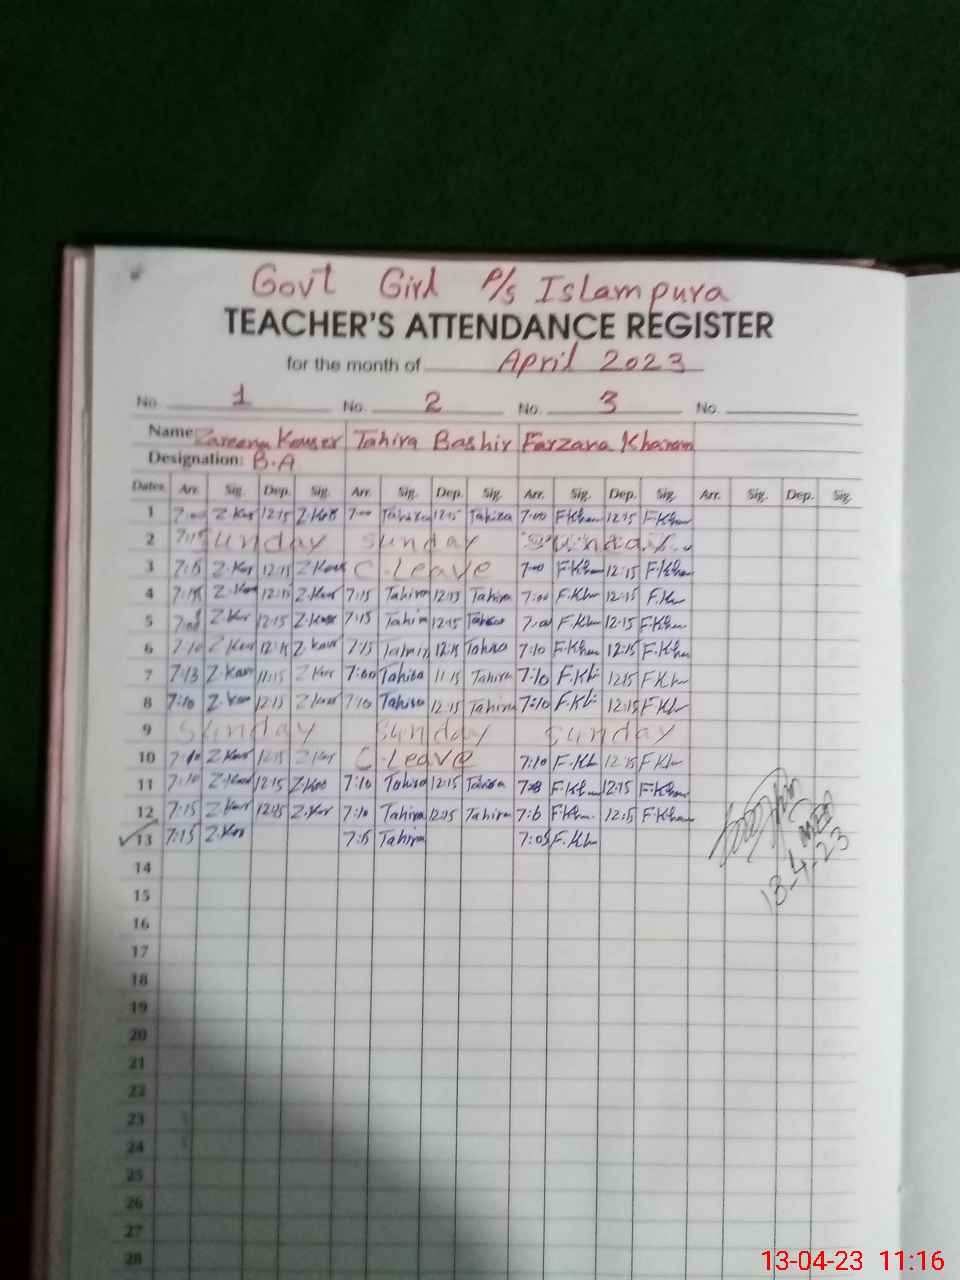 Govt Girl P/s Islampura
TEACHER'S ATTENDANCE REGISTER
for the month of April 2023
No. 1 No. 2 No. 3 No.
Name: Zareena Kouser Tahira Bashir Farzana Khanam
Designation: B.A
Dates Arr. Sig. Dep. Sig. Arr. Sig. Dep. Sig. Arr. Sig. Dep. Sig. Arr. Sig. Dep. Sig.
1 7:00 Z.Kor 12:15 Z.Kor 7:00 Tahira 12:15 Tahira 7:00 F.Khan 12:15 F.Khan
2 Sunday Sunday Sunday
3 7:15 Z.Kor 12:15 Z.Kous C.Leave 7:00 F.Khan 12:15 F.Khan
4 7:15 Z.Kous 12:15 Z.Kous 7:15 Tahira 12:15 Tahira 7:00 F.Kh 12:15 F.Kh
5 Z.Kor 12:15 Z.Kous 7:15 Tahira 12:15 Tahira 7:00 F.Kh 12:15 F.Khan
6 7:10 Z.Kous 12:15 Z.Kous 7:15 Tahira 12:15 Tahira 7:10 F.Khan 12:15 F.Khan
7 7:13 Z.Kous 11:15 Z.Kor 7:00 Tahira 11:15 Tahira 7:10 F.Kh 12:15 F.Kh
8 7:10 Z.Kous 12:15 Z.Kous 7:10 Tahira 12:15 Tahira 7:10 F.Kh 12:15 F.Kh
9 Sunday Sunday Sunday
10 7:10 Z.Kor 12:15 Z.Kor C.Leave 7:10 F.Kh 12:15 F.Kh
11 7:10 Z.Kous 12:15 Z.Koo 7:10 Tahira 12:15 Tahira F.Khan 12:15 F.Khan
12 7:15 Z.Kor 12:15 Z.Kor 7:10 Tahira 12:15 Tahira F.Khan 12:15 F.Khan
13 7:15 Z.Koo 7:15 Tahira 7:05 F.Kh
MEA
13-4-23
14
15
16
17
18
19
20
21
22
23
24
25
26
27
28
13-04-23 11:16